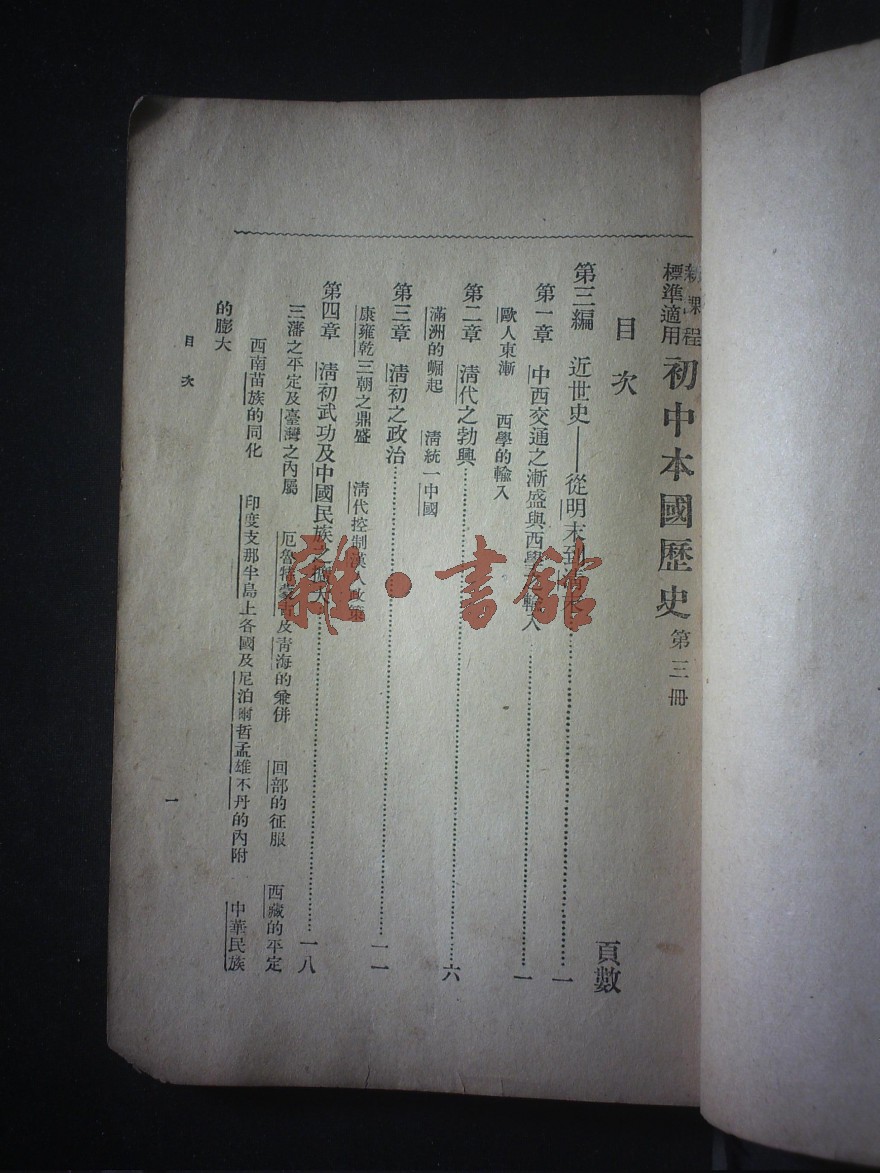 新課程
標準適用
初中本國歷史 第三冊
目次
頁數
第三編 近世史——從明末到清末……一
第一章 中西交通之漸盛與西學之輸入……一
歐人東漸 西學的輸入
第二章 清代之勃興……六
滿洲的崛起 清統一中國
第三章 清初之政治……一一
康雍乾三朝之鼎盛 清代控制漢人政策
第四章 清初武功及中國民族之擴大……一八
三藩之平定及臺灣之內屬 厄魯特蒙古及青海的兼併 回部的征服 西藏的平定
西南苗族的同化 印度支那半島上各國及尼泊爾哲孟雄不丹的內附 中華民族
的膨大
目次
一
雜·書館